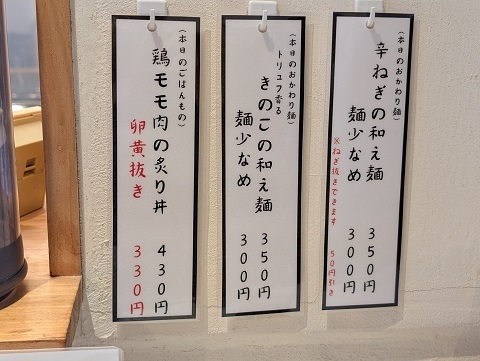 (本日のおかわり麺)
辛ねぎの和え麺 350円
麺少なめ 300円
※ねぎ抜きできます 50円引き
(本日のおかわり麺)
トリュフ香る
きのこの和え麺 350円
麺少なめ 300円
(本日のごはんもの)
鶏モモ肉の炙り丼 430円
卵黄抜き 330円